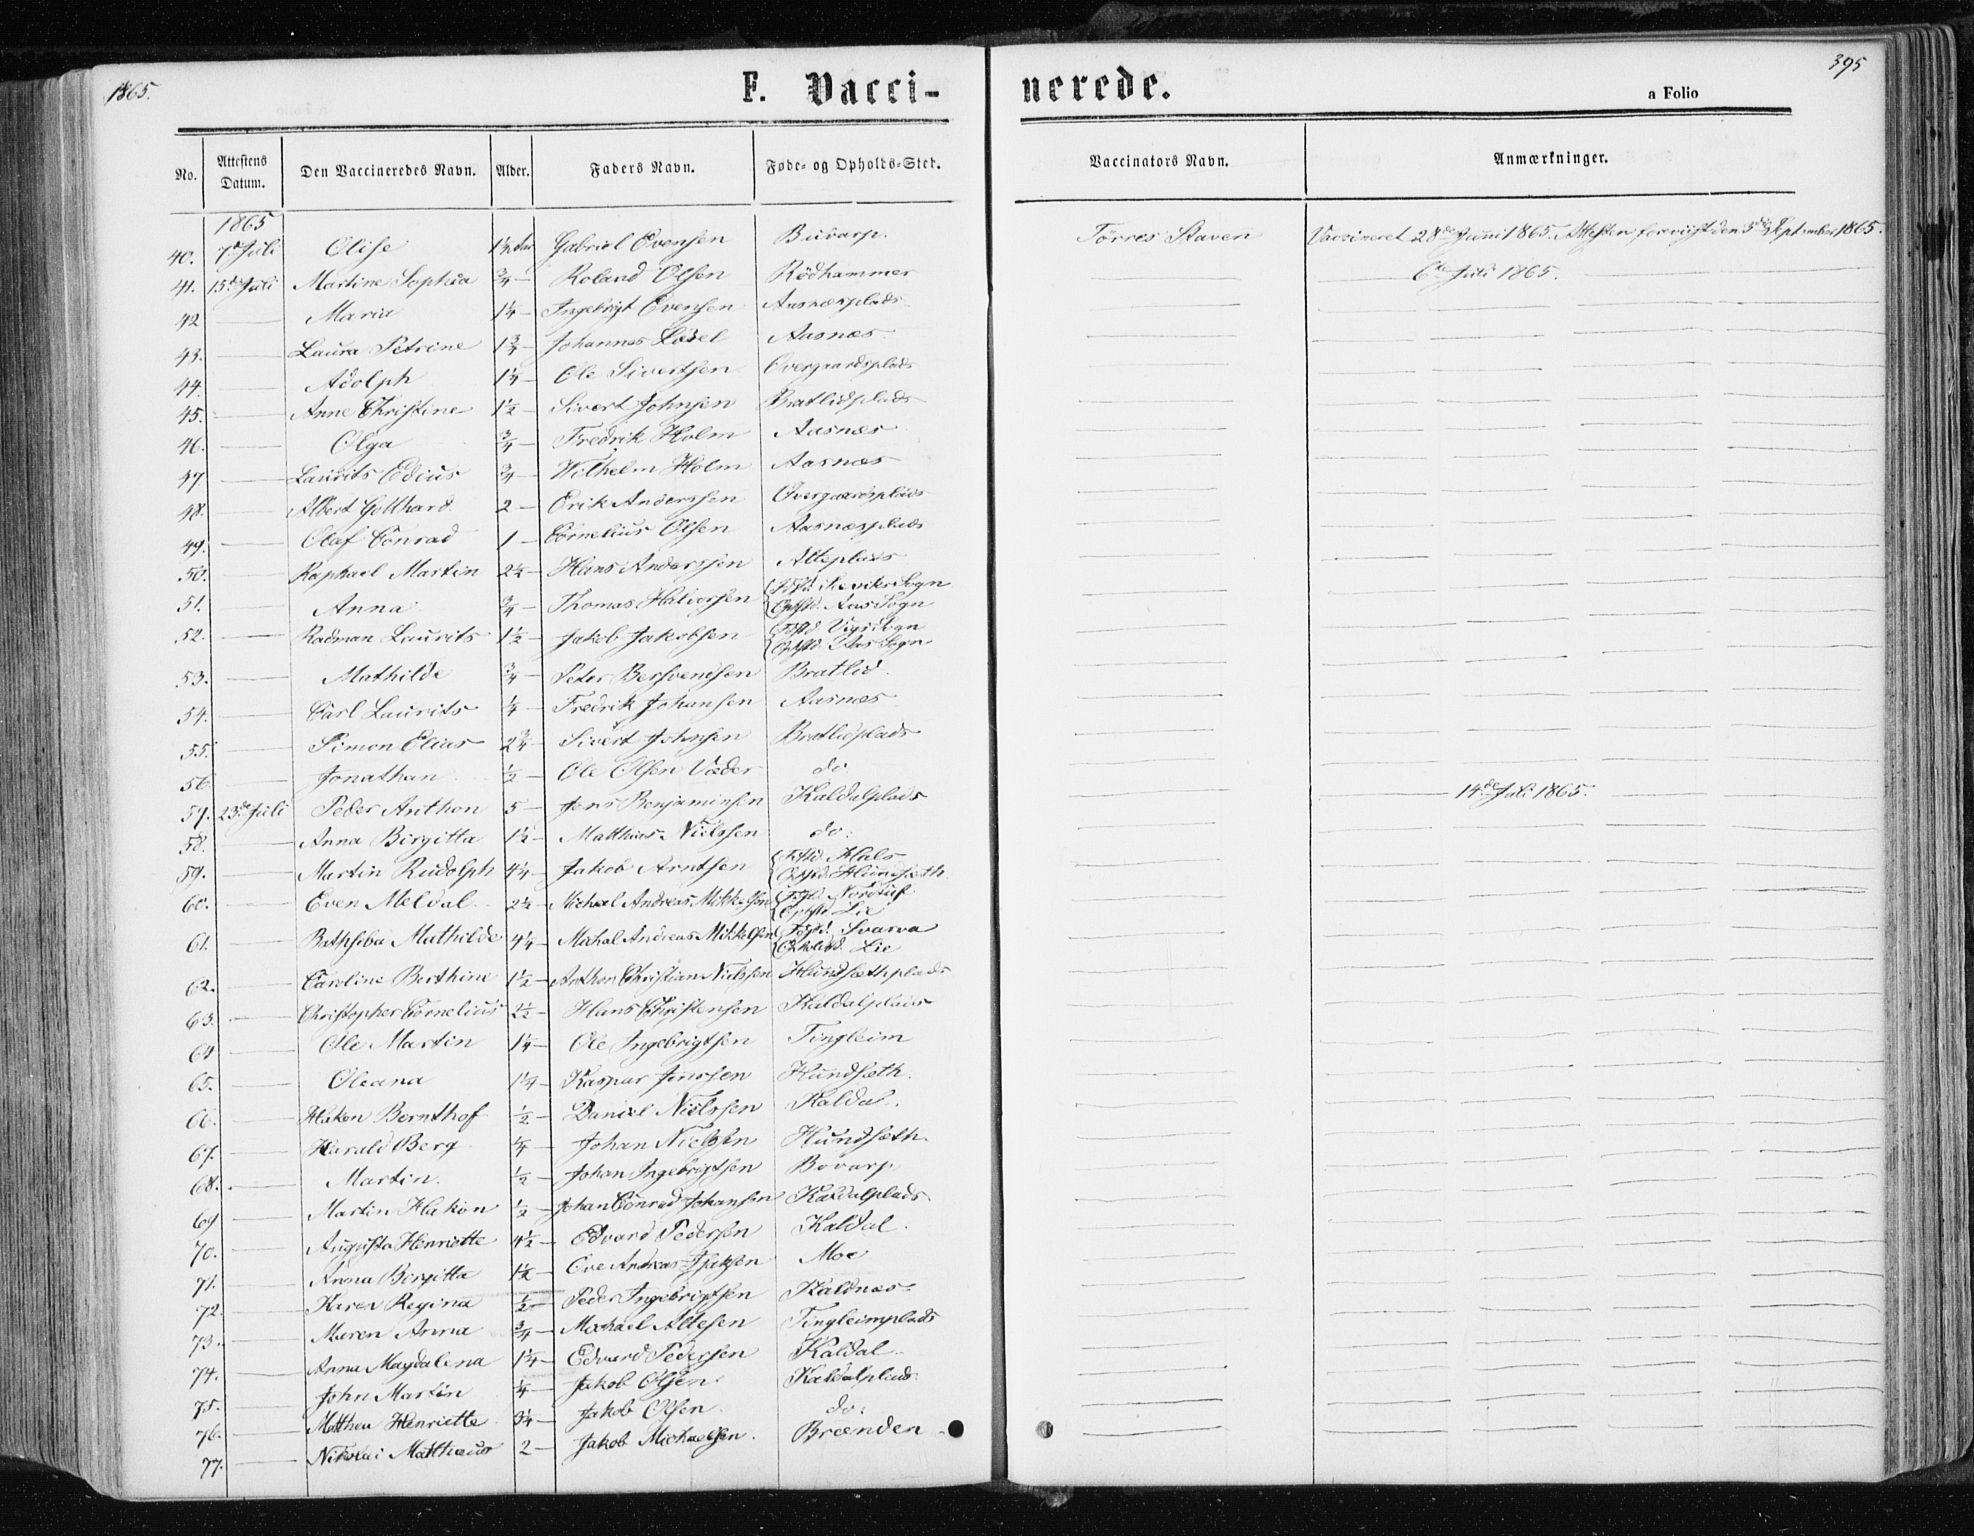 1865.
F. Vacci-
nerede.
a Folio
395
No. Attestens Datum. Den Vaccineredes Navn. Alder. Faders Navn. Føde- og Opholds-Sted. Vaccinators Navn. Anmærkninger.
1865
40. 7de Juli Olise 1¼ Aar Gabriel Evensen Buvarp. Tørres Staven Vaccineret 28de Juni 1865. Attesten foreviist den 5de September 1865.
41. 15de Juli Martine Sophia ¾ — Roland Olsen Rødhammer — 6te Juli 1865. —
42 — Maria 1¼ — Ingebrigt Evensen Aasnæsplads —
43. — Laura Petrine 1¾ — Johannes Aasnæs —
44. — Adolph 1¼ — Ole Sivertsen Overgaardsplads —
45. — Anne Christine 1½ — Sivert Johnsen Bratlidplads —
46. — Olga ¾ — Fredrik Holm Aasnæs —
47 — Laurits Edius ¾ — Wilhelm Holm Aasnæs —
48. — Albert Gotthard 2 — Erik Anderssen Overgaardsplads —
49. — Olaf Conrad 1 — Cornelius Olsen Aasnæsplads —
50. — Raphael Martin 2½ — Hans Anderssen Alteplads —
51. — Anna ¾ — Thomas Halversen Føsd. Sogn Ophstd. Aas Sogn —
52. — Radman Laurits 1½ — Jakob Jakobsen Føsd. Sogn Ophstd. Aas Sogn —
53. — Mathilde ¾ — Peter Bersvendsen Bratlid. —
54. — Carl Laurits ¼ — Fredrik Johansen Aasnæs —
55. — Simon Elias 2¾ — Sivert Johnsen Bratlidplads —
56 — Jonathan ½ — Ole Olsen Væder do —
57. 23de Juli Peder Anthon 5 — Jens Benjaminsen Kaldalplads — 14de Juli 1865. —
58. — Anna Birgitta 1½ — Matthias Nielssen do: —
59. — Martin Rudolph 4¼ — Jakob Arntsen Føstd. Hals Ophstd. Hundsæth —
60. — Even Meldal 2½ — Michael Andreas Mikkelsen Føstd. Ophstd. Lie —
61. — Bathseba Mathilde 4¼ — Michal Andreas Mikkelsen Føstd. Svarva Ophstd. Lie —
62. — Caroline Berthine 1½ — Anthon Christian Nielssen Hundsæthplads —
63. — Christopher Cornelius 2½ — Hans Christensen Kaldalplads —
64 — Ole Martin 1¼ — Ole Ingebrigtsen Tingleim —
65. — Oleana 1¼ — Kaspar Jenssen Hundsæth. —
66. — Hakon Bernthof ½ — Daniel Nielssen Kaldal. —
67. — Harald Berg ¼ — Johan Nielssen Hundsæth. —
68. — Martin. ½ — Johan Ingebrigtsen Bovarp —
69 — Martin Hakon ½ — Johan Conrad Johansen Kaldalplads. —
70. — Augusta Henriette 4½ — Edvard Pedersen Kaldal. —
71. — Anna Birgitta 1½ — Ove Andreas Isaksen Moe —
72. — Karen Regina ½ — Peder Ingebrigtsen Kaldnæs —
73. — Maren Anna ¾ — Michael Altesen Tingleimplads —
74. — Anna Magdalena 1¼ — Edvard Pedersen Kaldal. —
75. — John Martin ¼ — Jakob Olsen. Kaldalplads. —
76. — Mathea Henriette 3¼ — Jakob Olsen. do: —
77. — Nikolai Matthæus 2 — Jakob Michaelsen. Brænden —